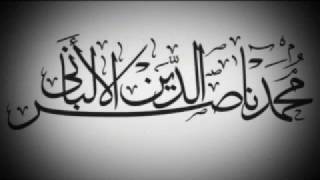 محمد ناصر الدين الألباني